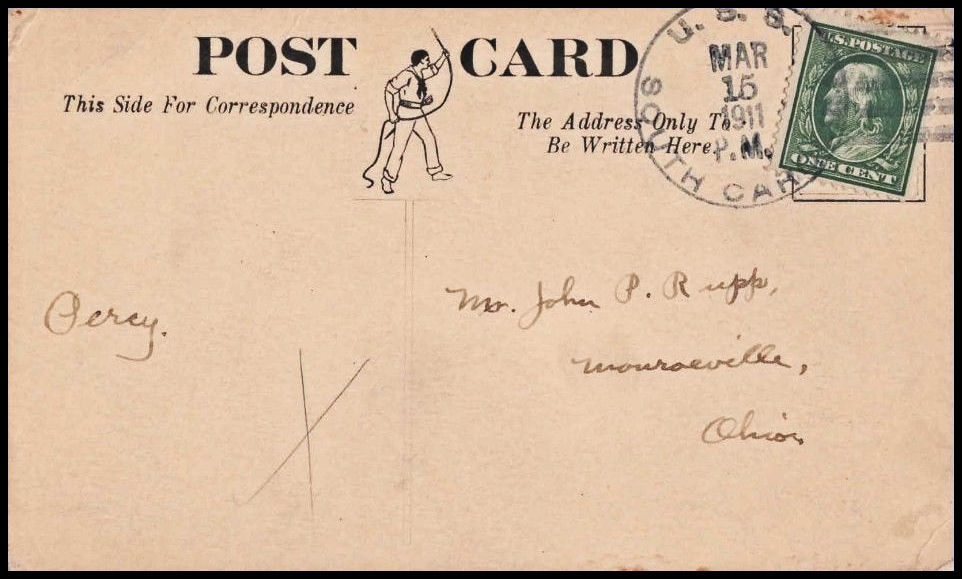 POST CARD
This Side For Correspondence
The Address Only To
Be Written Here.
U.S.S.
SOUTH CAR
MAR
15
1911
P.M.
U.S. POSTAGE
ONE CENT
Percy.
Mr. John P. Rupp,
Monroeville,
Ohio.